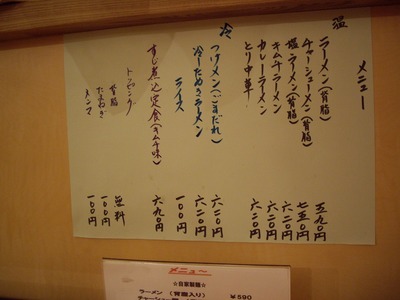 メニュー
温
ラーメン(背脂) 五九〇円
チャーシューメン(背脂) 七五〇円
塩ラーメン(背脂) 六二〇円
キムチラーメン 六二〇円
カレーラーメン 六二〇円
とり中華 六二〇円
冷
つけメン(ごまだれ) 六二〇円
冷したぬきラーメン 六二〇円
ライス 一〇〇円
すじ煮込定食(キムチ味) 六九〇円
トッピング
背脂 無料
たまねぎ 一〇〇円
メンマ 一〇〇円
メニュー
☆自家製麺☆
ラーメン (背脂入り) ¥590